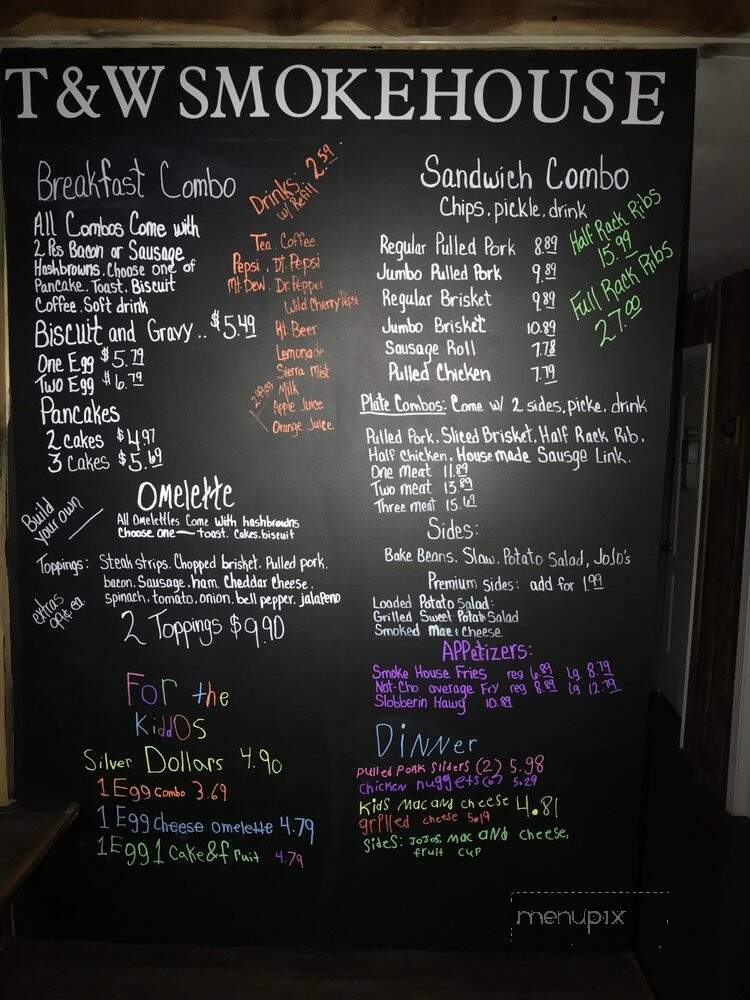 T&W SMOKEHOUSE
Breakfast Combo
All Combos Come with
2 Pcs Bacon or Sausage
Hashbrowns. Choose one of
Pancake. Toast. Biscuit
Coffee. Soft drink
Biscuit and Gravy.. $5.49
One Egg $5.79
Two Egg $6.79
Pancakes
2 cakes $4.97
3 Cakes $5.69
Drinks: 2.59
w/ Refill
Tea. Coffee
Pepsi. Dt. Pepsi
Mt. Dew. Dr. Pepper
Wild Cherry Pepsi
Rt. Beer
Lemonade
Sierra Mist
Milk
Apple Juice
Orange Juice
Build your own
Omelette
All Omelettles Come with hashbrowns
Choose one — toast. Cakes. biscuit
Toppings: Steak strips. Chopped brisket. Pulled pork.
bacon. Sausage. ham. Cheddar Cheese.
spinach. tomato. onion. bell pepper. jalapeno
extras 99¢ ea
2 Toppings $9.90
For the
KiddOs
Silver Dollars 4.90
1 Egg Combo 3.69
1 Egg Cheese omelette 4.79
1 Egg 1 Cake & fruit 4.79
Sandwich Combo
Chips. pickle. drink
Regular Pulled Pork 8.89
Jumbo Pulled Pork 9.89
Regular Brisket 9.89
Jumbo Brisket 10.89
Sausage Roll 7.78
Pulled Chicken 7.79
Half Rack Ribs
15.99
Full Rack Ribs
27.00
Plate Combos: Come w/ 2 sides, picke. drink
Pulled Pork. Sliced Brisket. Half Rack Rib.
Half Chicken. House made Sausge Link.
One meat 11.89
Two meat 13.89
Three meat 15.69
Sides:
Bake Beans. Slaw. Potato Salad, JoJo's
Premium sides: add for 1.99
Loaded Potato Salad:
Grilled Sweet Potato Salad
Smoked Mac & Cheese
APPetizers:
Smoke House Fries reg 6.89 Lg 8.79
Not-Cho average Fry reg 8.89 Lg 12.79
Slobberin Hawg 10.89
Dinner
Pulled Pork Sliders (2) 5.98
Chicken nuggets (6) 5.29
Kids Mac and cheese 4.81
grilled cheese 5.19
Sides: JoJos, Mac and cheese,
fruit cup
menupix